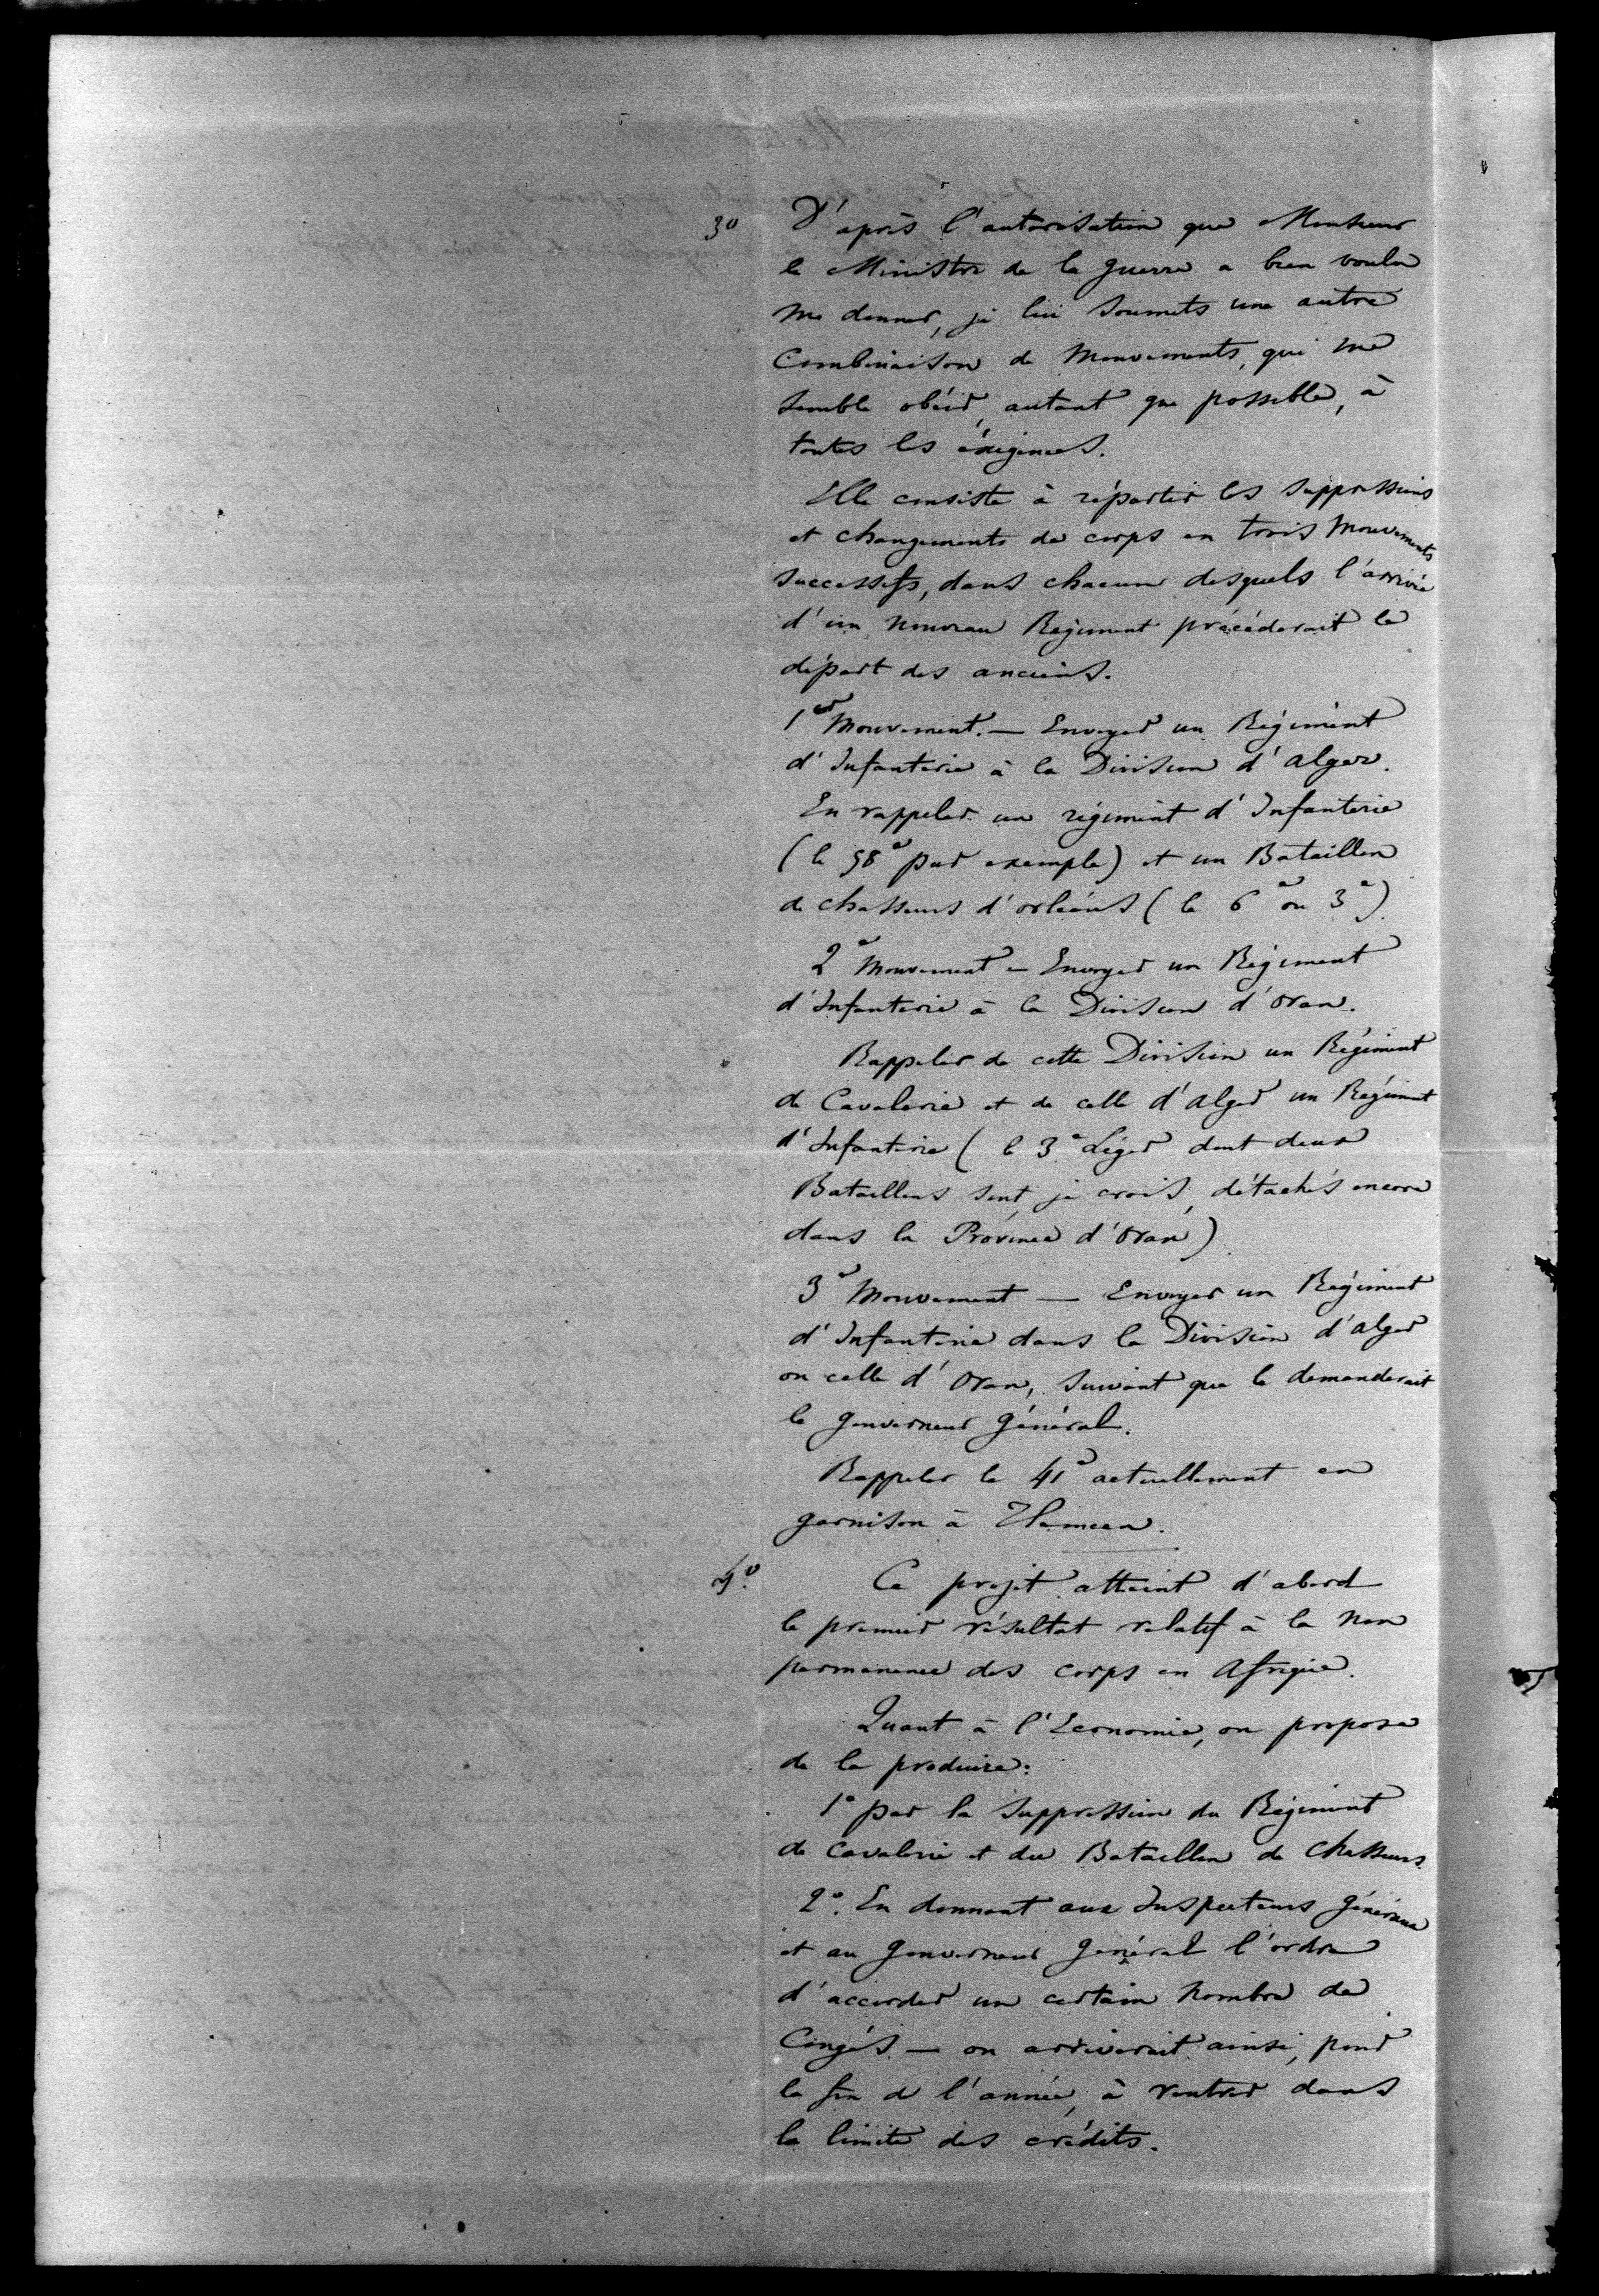 3° D'après l'autorisation que Monsieur
le Ministre de la guerre a bien voulu
me donner, je lui soumets une autre
Combinaison de Mouvements, qui me
semble obéir, autant que possible, à
toutes les éxigences.
Elle consiste à répartir les suppressions
et changements de corps en trois Mouvements
successifs, dans chacun desquels l'arrivée
d'un nouveau Régiment précéderait le
départ des anciens.
1er Mouvement. — Envoyer un Régiment
d'Infanterie à la Division d'alger.
En rappeler un régiment d'Infanterie
(le 58e par exemple) et un Bataillon
de chasseurs d'orléans (le 6e ou 3e).
2e Mouvement — Envoyer un Régiment
d'Infanterie à la Division d'Oran.
Rappeler de cette Division un Régiment
de Cavalerie et de celle d'alger un Régiment
d'Infanterie (le 3e Léger dont deux
Bataillons sont, je crois, détachés encore
dans la Province d'Oran).
3e Mouvement — Envoyer un Régiment
d'Infanterie dans la Division d'alger
ou celle d'Oran, suivant que le demanderait
le gouverneur général.
Rappeler le 41e actuellement en
garnison à Tlemcen.
4° Ce projet atteint d'abord
le premier résultat relatif à la non
permanence des corps en Afrique.
Quant à l'Economie, on propose
de la produire:
1° par la suppression du Régiment
de Cavalerie et du Bataillon de Chasseurs.
2°. En donnant aux Inspecteurs généraux
et au gouverneur général l'ordre
d'accorder un certain nombre de
Congés — on arriverait ainsi, pour
la fin de l'année, à rentrer dans
la limite des crédits.